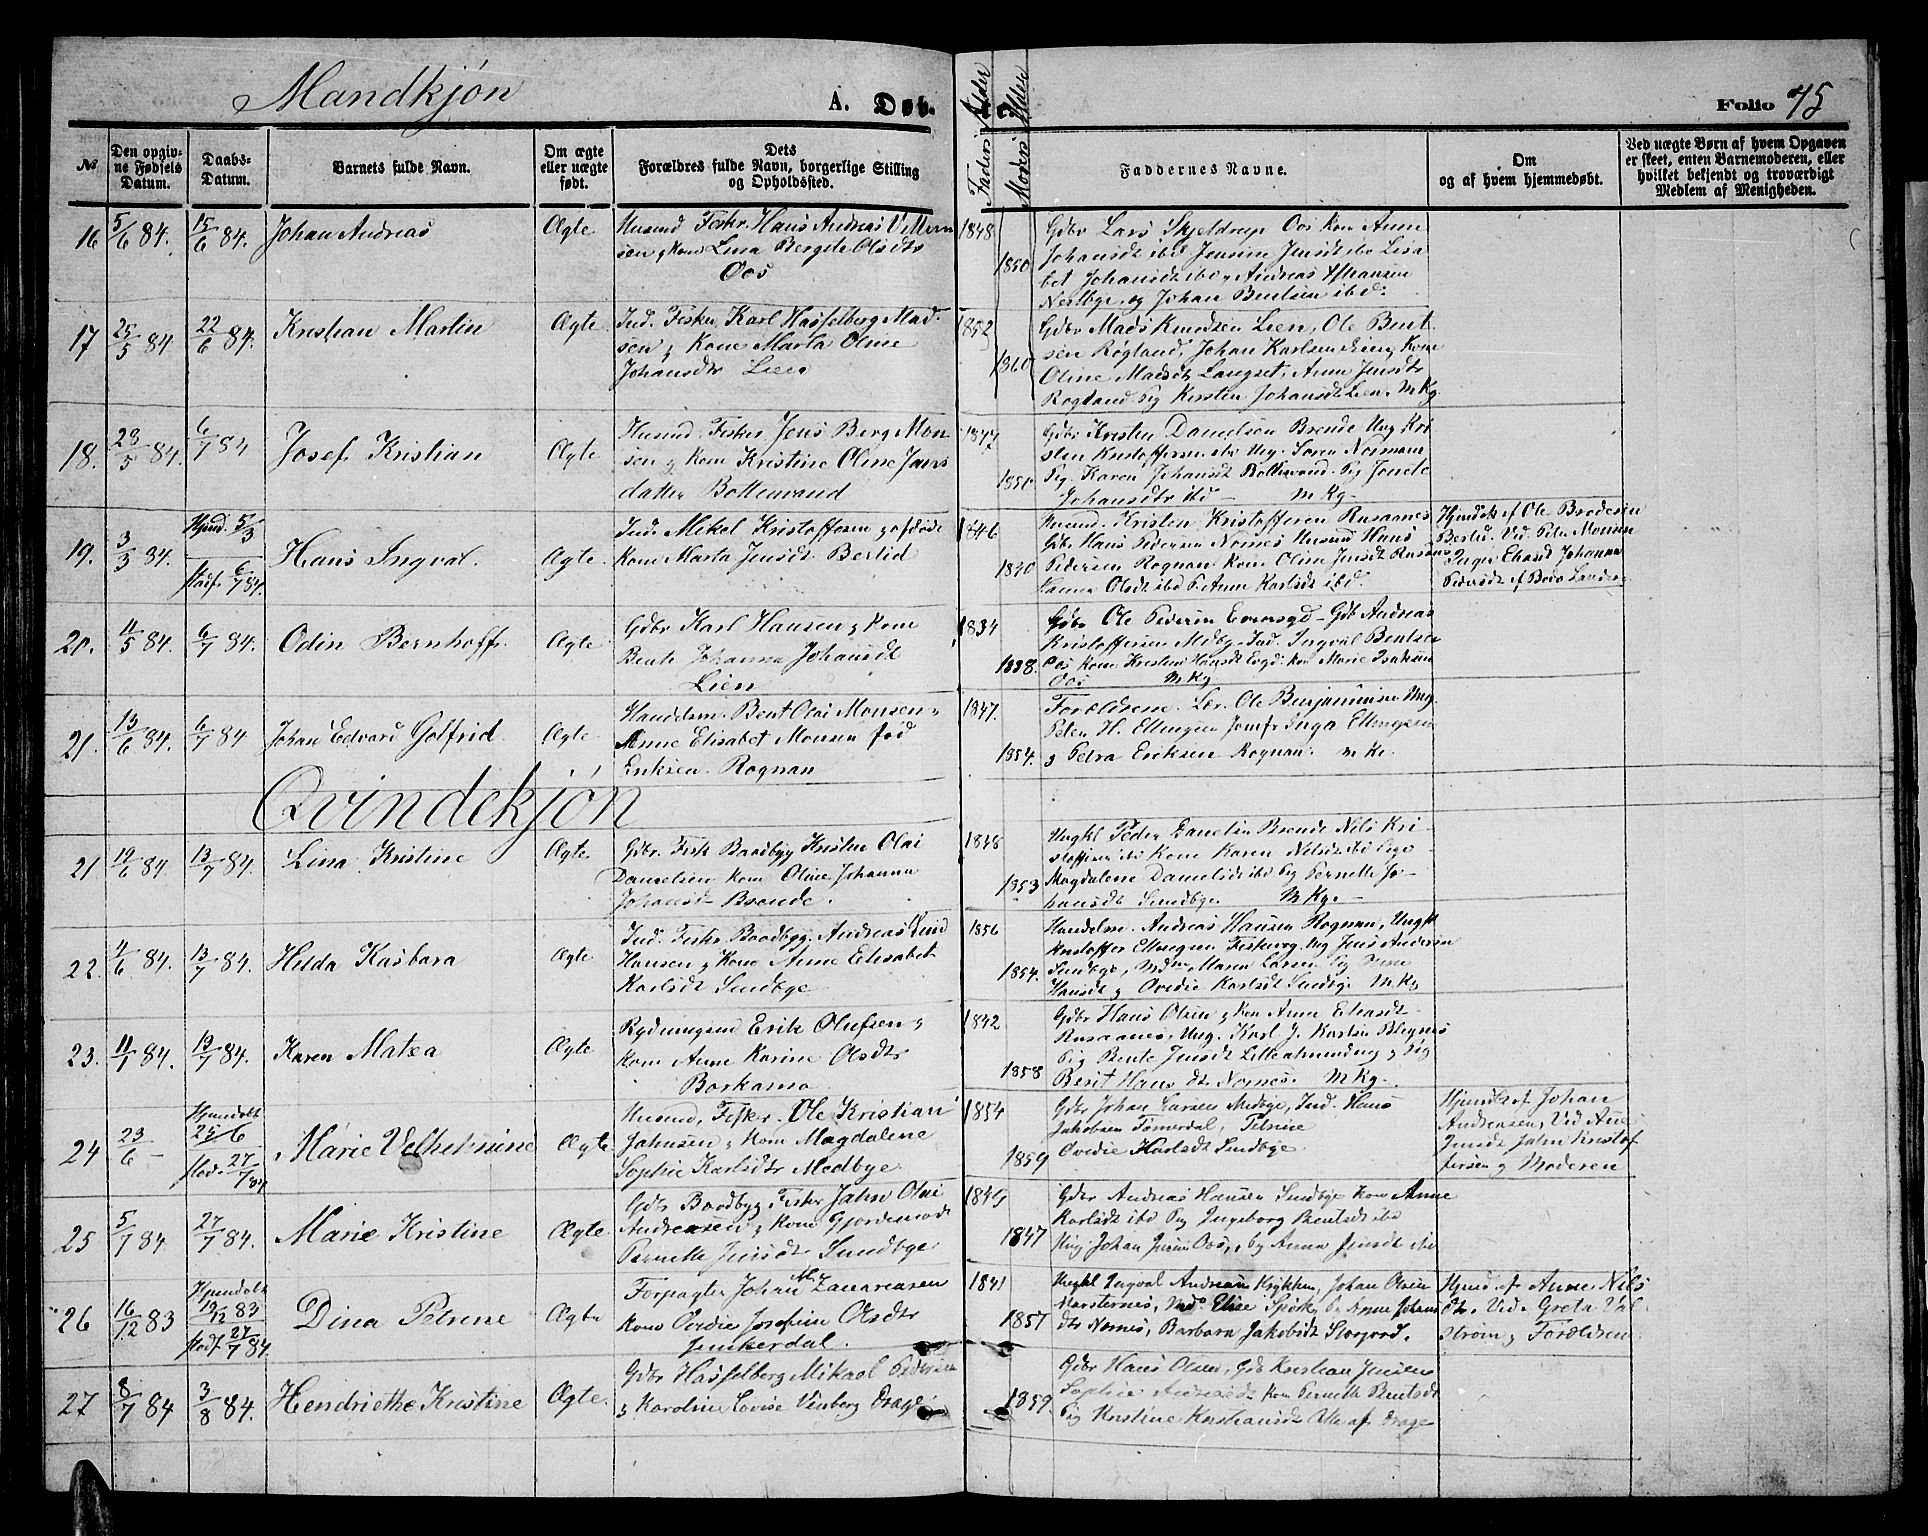 Mandkjøn
A. Døb-
te.
Folio 75
Faders Alder
Moders Alder
№
Den opgiv-
ne Fødsels
Datum.
Daabs-
Datum.
Barnets fulde Navn.
Om ægte
eller uægte
født.
Dets
Forældres fulde Navn, borgerlige Stilling
og Opholdssted.
Faddernes Navne.
Om
og af hvem hjemmedøbt.
Ved uægte Børn af hvem Opgaven
er skeet, enten Barnemoderen, eller
hvilket bekjendt og troværdigt
Medlem af Menigheden.
16 5/6 84. 15/6 84. Johan Andreas Ægte
Husmd Fisker Hans Andreas
Kone Lina Bergete Olsdtr
Oos
1848
1850
Gdbr Lars Skjeldrup Oos Kone Anne
Johansdt ibd Jensine Jensdt ibd Lisa
bet Johansdt ibd Andreas
og Johan Bentsen ibd.
17 25/5 84 22/6 84. Kristian Martin Ægte.
Ind. Fisker Karl Hasselberg Mad-
sen g Kone Marta Oline
Johansdtr Lien
1852
1860
Gdbr Mads Knudsen Lien, Ole Bent
sen Røgland, Johan Karlsen Lien, Kone
Oline Madsdtr Langset, Anne Jensdtr
Rogland Pig Kirsten Johansdt Lien. M Kg
18. 23/5 84. 6/7 84 Josef Kristian Ægte
Husmd. Fisker Jens Berg Mon
sen g Kone Kristine Oline Jans
datter Bottenvand
1847
1851
Gdbr Kristen Danielsen Brende Ung Kri
sten Kristoffersen ibd Ung. Soren
Pig Karen Johansdt Bottenvand. Pig
Johansdtr ibd M Kg.
19. 3/3 84. Hjmd. 5/3
stadf. 6/7 84. Hans Ingval. Ægte.
Ind. Mikel Kristoffersen g afdøde
Kone Marta Jensdt Bertid
1846
1840
Husmd. Kristen Kristoffersen Rusaanes
Gdbr Hans Pedersen Nornes Husmd Hans
Pedersen Rognan. Kone Oline Jensdt Rusaanes
Hanna Olsdt ibd P. Anne Karlsdt ibd.
Hjmdøb af Ole Brodersen
Ved. Peter Monsen
Inger Johanna
Pedersdt af Bodo Landsogn
20. 11/5 84. 6/7 84. Odin Bernhoff. Ægte
Gdbr Karl Hansen g Kone
Bente Johanna Johansdt
Lien
1834
1838.
Gdbr Ole Pedersen Evensgd- Gdb Andreas
Kristoffersen Medby- Ind. Ingval Bentsen
Oos Kone Kristine Hansdt Evgd. Kon Marie Isaksen
Oos M Kg
21. 13/6 84. 6/7 84 Johan Edvard Golfrid. Ægte
Handelsm. Bent Olai Monsen g
Anne Elisabet Monsen fød
Eriksen. Rognan
1847.
1854.
Forældrene. Lær. Ole Benjaminsen Ung.
Peter H. Ellingsen Jomfr Inga Ellingsen
g Petra Eriksen Rognan. M Kg.
Qvindekjøn
21 19/6 84 13/7 84. Lina Kristine Ægte
Gdbr. Fisk Baadbyg Kristen Olai
Danielsen Kone Oline Johanna
Johansdt Brende.
1848
1853
Ungkl Peder Danielsen Brende Nils Kri-
stoffersen ibd Kone Karen Nilsdt ibd Pige
Magdalene Danielsdt ibd Pig Pernelle Jo-
hansdt Sundbye M Kg.
22. 4/6 84. 13/7 84. Hilda Kasbara Ægte
Ind. Fisker Baadbyg. Andreas Lind
Hansen g Kone Anne Elisabet
Karlsdt Sundbye
1856
1854.
Handelsm. Andreas Hansen Rognan, Ungk
Kristoffer Ellingsen Ung Jens Andersen
Sundbye, Mdm Maren Larsen Pig
Hansdt g Ovedie Karlsdt Sundbye M Kg
23. 11/7 84. 13/7 84. Karen Matea Ægte
Rydningsmd Erik Olufsen g
Kone Anne Karine Olsdtr
Borkamo
1842
1858
Gdbr Hans Olsen g Kon Anne
Rusaanes, Ung. Karl J. Karlsen
Pig Bente Jensdt Lillealmending g Pig
Berit Hansdtr Nornes. M Kg.
24 23/6 - Hjemdøbt
25/6
stad. 27/7 84 Marie Velhelmine Ægte
Husmd, Fisker. Ole Kristian
Jahnsen g Kone Magdalene
Sophie Karlsdtr Medbye
1854
1859
Gdbr Johan Larsen Medbye, Ind. Hans
Jakobsen Tomerdal, Petrine
Ovedie Karlsdt Sundbye.
Hjmdøb af Johan
Andreasen, Ved Ane
Jensdt Jahn Kristof
fersen g Moderen
25 5/7 84 27/7 84. Marie Kristine Ægte
Gdbr Baadbyg Fisker Jahn Olai
Andreasen g Kone Gjordemoder
Pernelle Jensdt Sundbye
1845
1847
Gdbr Andreas Hansen Sundbye Kone Anne
Karlsdt ibd Pig Ingeborg Bentsdt ibd
Ung. Johan Jensen Oos, Pig Anna Jensdt ibd
26 16/12 83 Hjemdøbt
19/12 83
stadf. 27/7 84. Dina Petrine Ægte
Forpagter Johan M. Zakariasen
Kone Ovedie Josefine Olsdtr
Junkerdal.
1841
1857
Ungkl Ingval Andreasen Krykken, Johan Olsen
Harsternes, Md. Elise Spørk, P. Anne Johans
dtr Nornes, Barbara Jakobsdt Storjord.
Hjmd. af Anne Nils
Dtr. Ved. Greta Val
strøm g Forældren
27 8/7 84 3/8 84. Hendriethe Kristine Ægte.
Gdbr Hasselberg Mikael Pedersen
g Karoline Lovise Vinberg Drage
1859.
Gdbr Hans Olsen, Gdb Kristian Jensen
Sophie Andreasdt Kone Pernelle Bentsdt
Pig Kristine Kristiansdt Alle af Drage